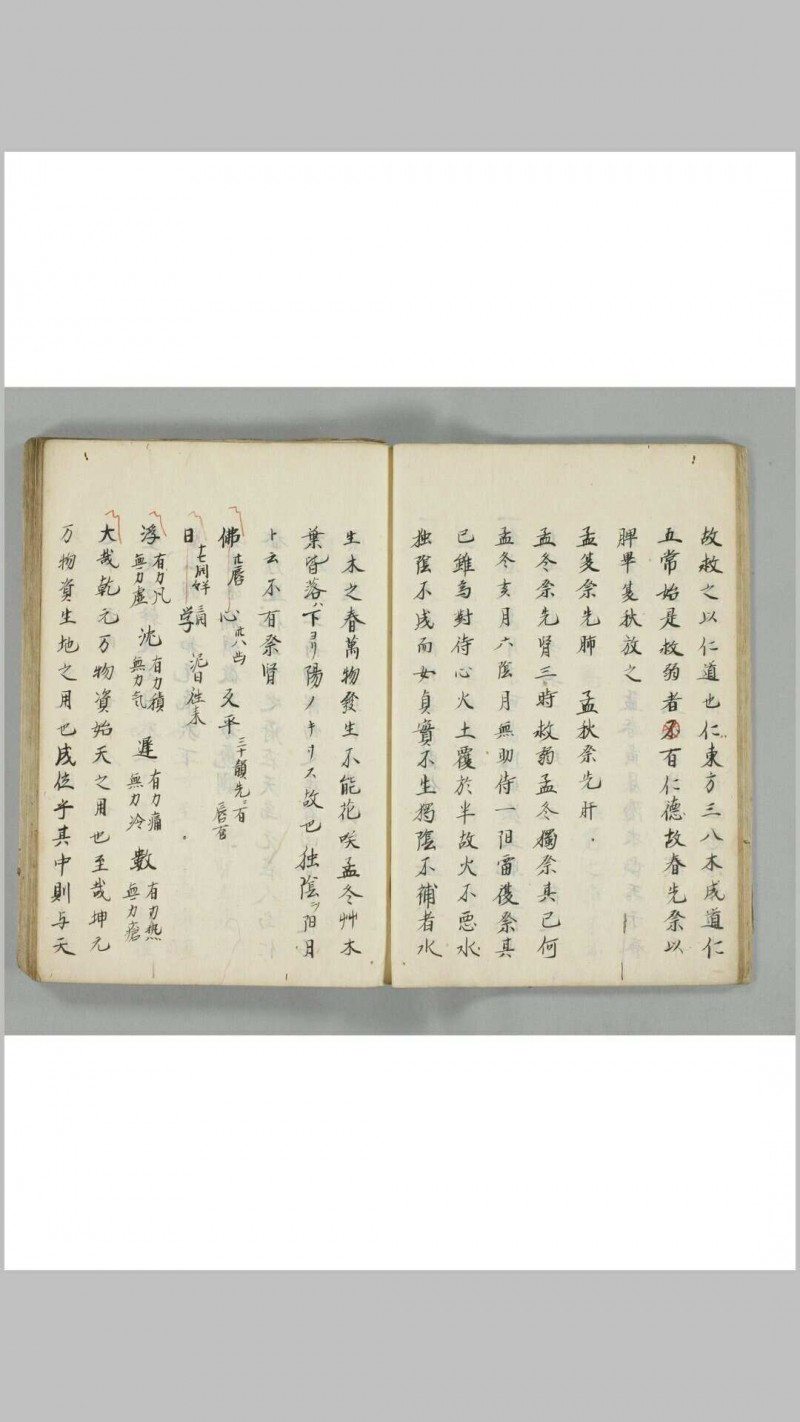 故救之以仁道也仁東方三八木成道仁
五常始是救弱者不有仁德故春先祭以
脾畢夏秋放之
孟夏祭先肺 孟秋祭先肝
孟冬祭先腎三時救弱孟冬獨祭其已何
孟冬亥月六陰月無助侍一阳雷復祭其
已雖為對待心火土覆於半故火不惡水
独陰不成而女貞實不生獨陰不補者水
生木之春萬物發生不能花咲孟冬艸木
葉皆落ハ下ヨリ陽ノキリス故也独陰ヲ阳月
ト云不有祭腎
佛 心 文平
日 学
浮 有力風 無力虚 沈 有力積 無力気 遲 有力痛 無力冷 數 有力熱 無力瘡
大哉乾元万物資始天之用也至哉坤元
万物資生地之用也成位乎其中則与天